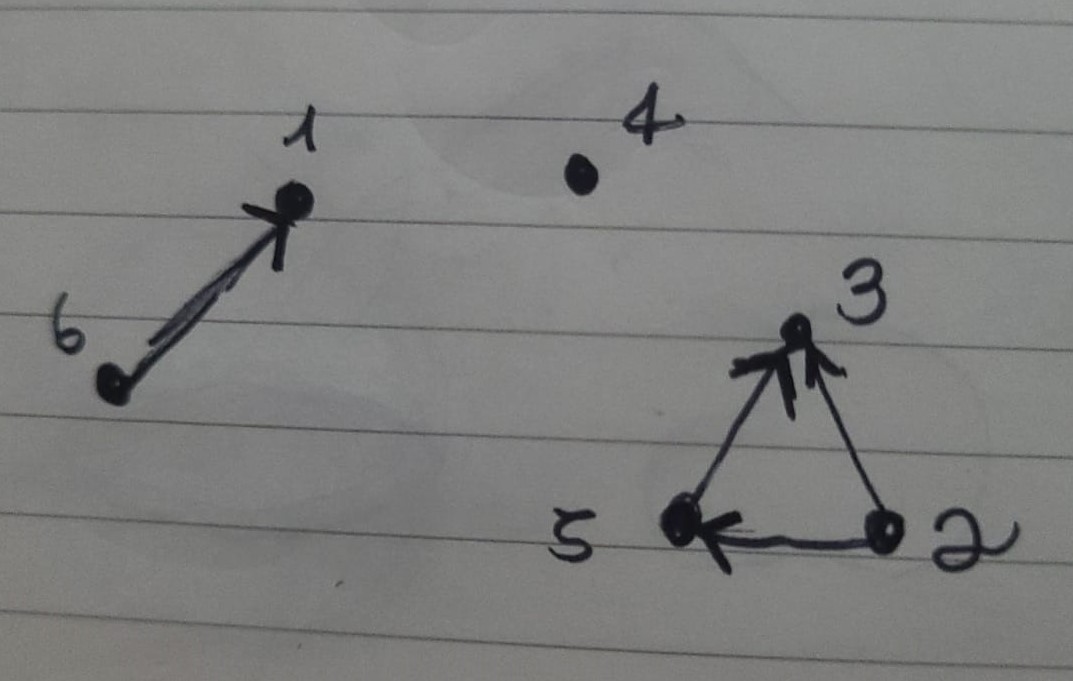 1
4
6
3
5
2